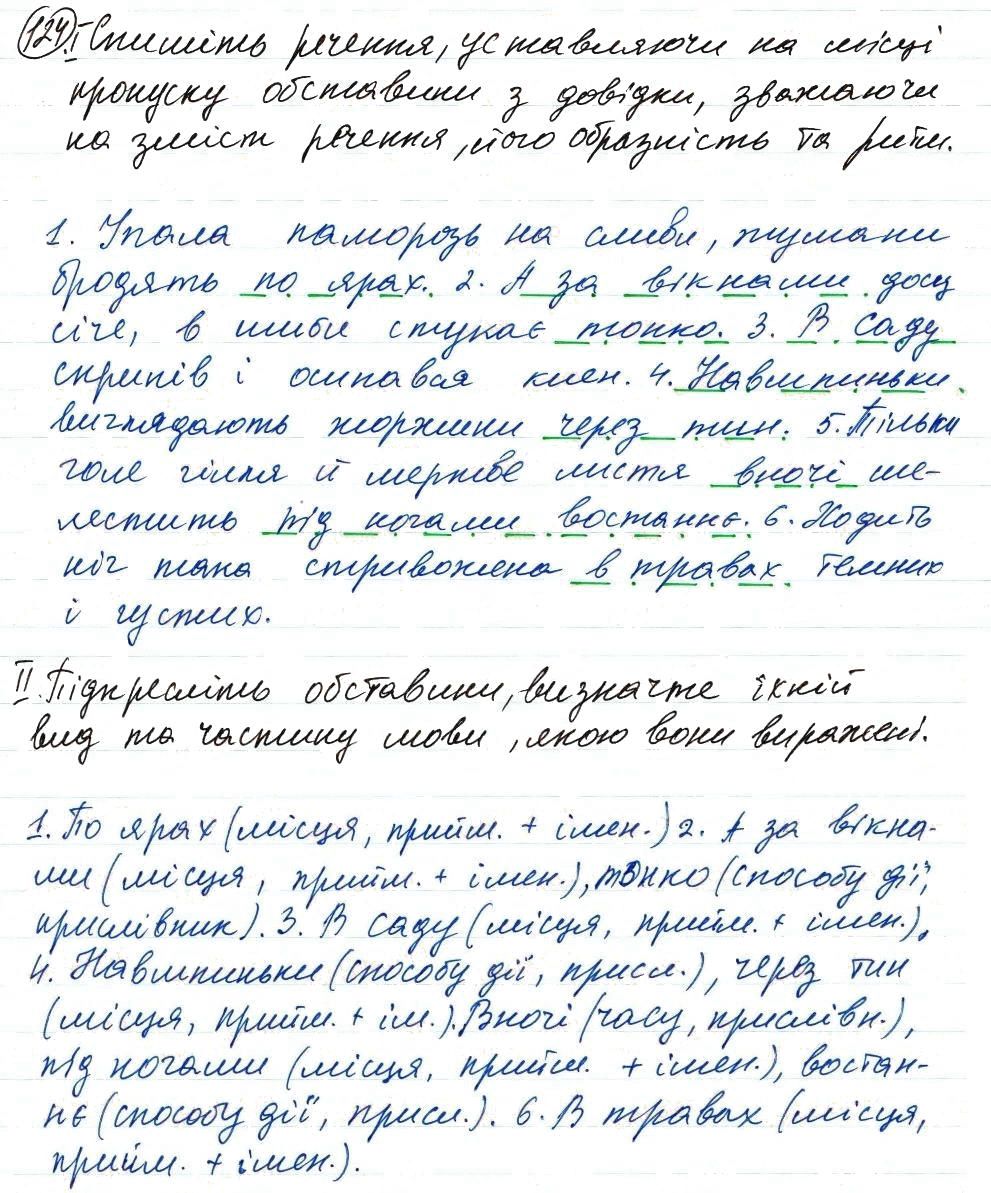 124 I Спишіть речення, уставляючи на місці
пропуску обставини з довідки, зважаючи
на зміст речення, його образність та ритм.
1. Упала паморозь на сливи, тумани
бродять по ярах. 2. А за вікнами дощ
січе, в шиби стукає тонко. 3. В саду
скрипів і осипався клен. 4. Навшпиньки
виглядають жоржини через тин. 5. Тільки
голе гілля й мертве листя вночі ше-
лестить під ногами востаннє. 6. Ходить
ніч така стривожена в травах темних
і густих.
II. Підкресліть обставини, визначте їхній
вид та частину мови, якою вони виражені.
1. По ярах (місця, прийм. + імен.) 2. А за вікна-
ми (місця, прийм. + імен.), тонко (способу дії,
прислівник). 3. В саду (місця, прийм. + імен.).
4. Навшпиньки (способу дії, присл.), через тин
(місця, прийм. + ім.). Вночі (часу, прислівн.),
під ногами (місця, прийм. + імен.), востан-
нє (способу дії, присл.). 6. В травах (місця,
прийм. + імен.).